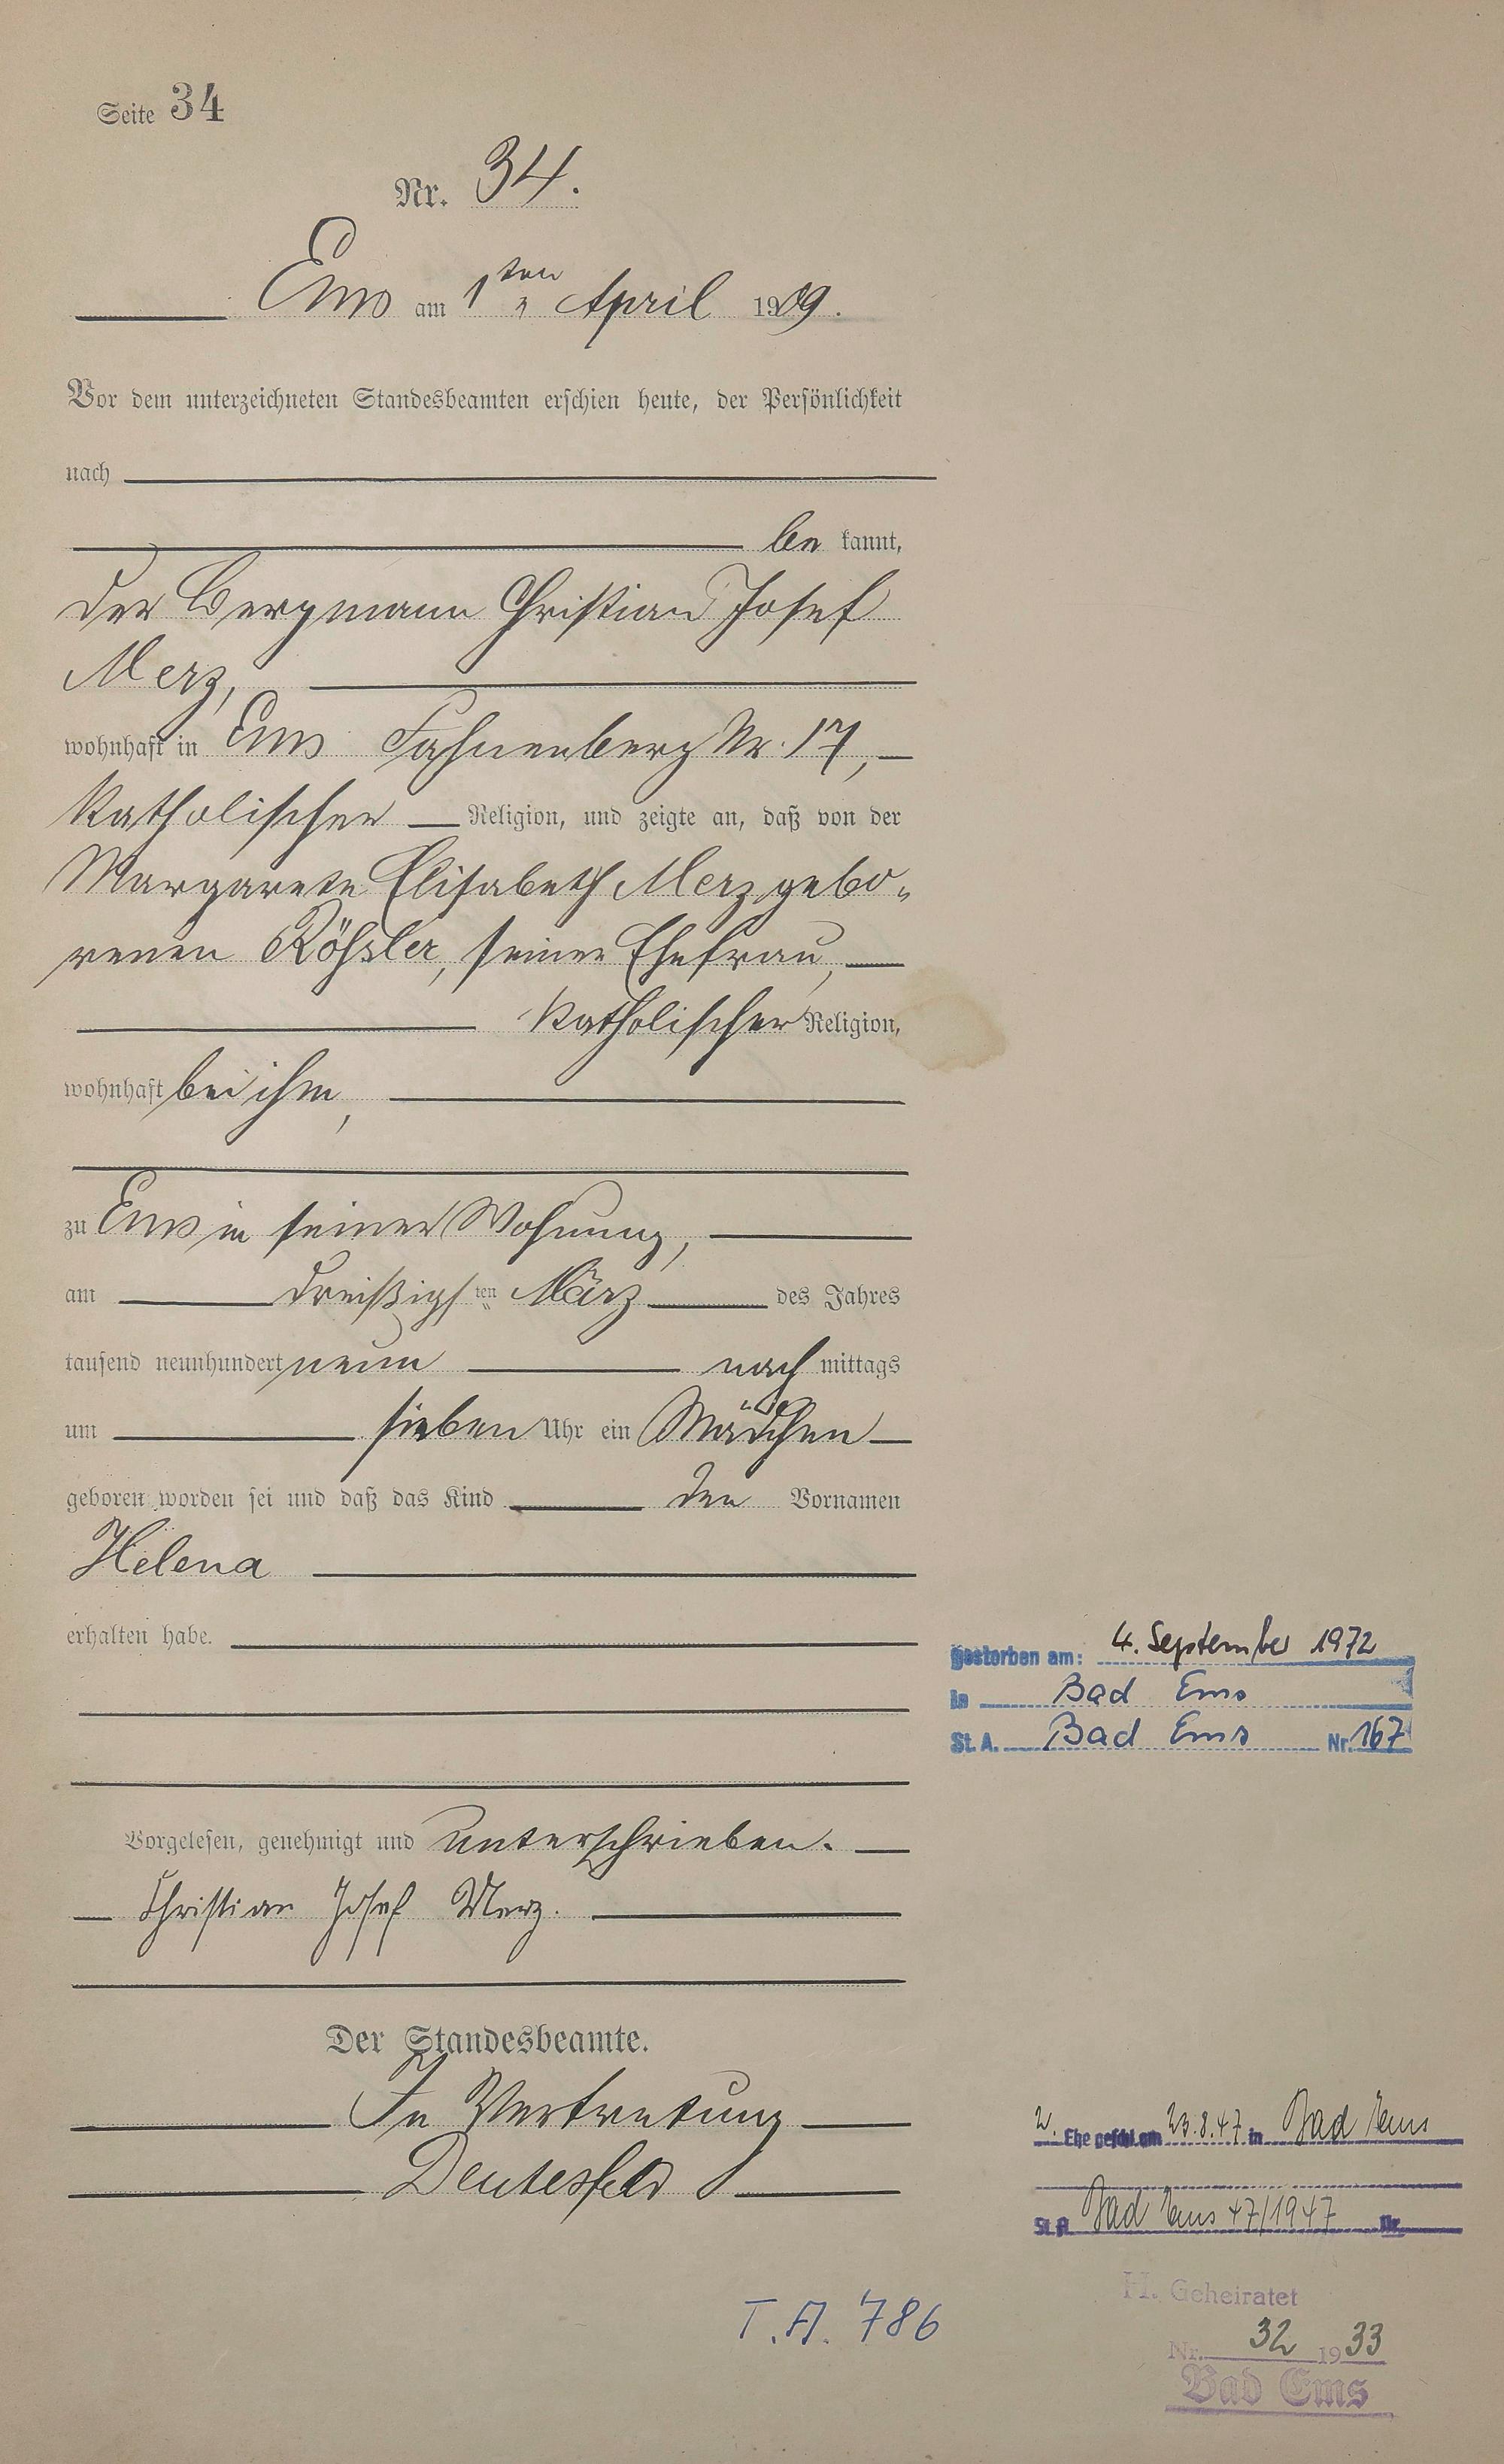 Seite 34
Nr. 34.
Ems am 1ten April 1909.
Vor dem unterzeichneten Standesbeamten erschien heute, der Persönlichkeit
nach
be kannt,
der Bergmann Christian Josef
Merz,
wohnhaft in Ems Fahnenberg Nr. 17,
katholischer Religion, und zeigte an, daß von der
Margarete Elisabeth Merz gebo-
renen Rößler, seiner Ehefrau,
katholischer Religion,
wohnhaft bei ihm,
zu Ems in seiner Wohnung,
am dreißigsten März des Jahres
tausend neunhundert neun nach mittags
um sieben Uhr ein Mädchen
geboren worden sei und daß das Kind den Vornamen
Helena
erhalten habe.
gestorben am: 4. September 1972
in Bad Ems
St. A. Bad Ems Nr. 167
Vorgelesen, genehmigt und unterschrieben.
Christian Josef Merz.
Der Standesbeamte.
In Vertretung
Deutesfeld
2. Ehe geschl. am 23.8.47 in Bad Ems
St. A. Bad Ems 47/1947 Nr.
T.A. 786
H. Geheiratet
Nr. 32 1933
Bad Ems